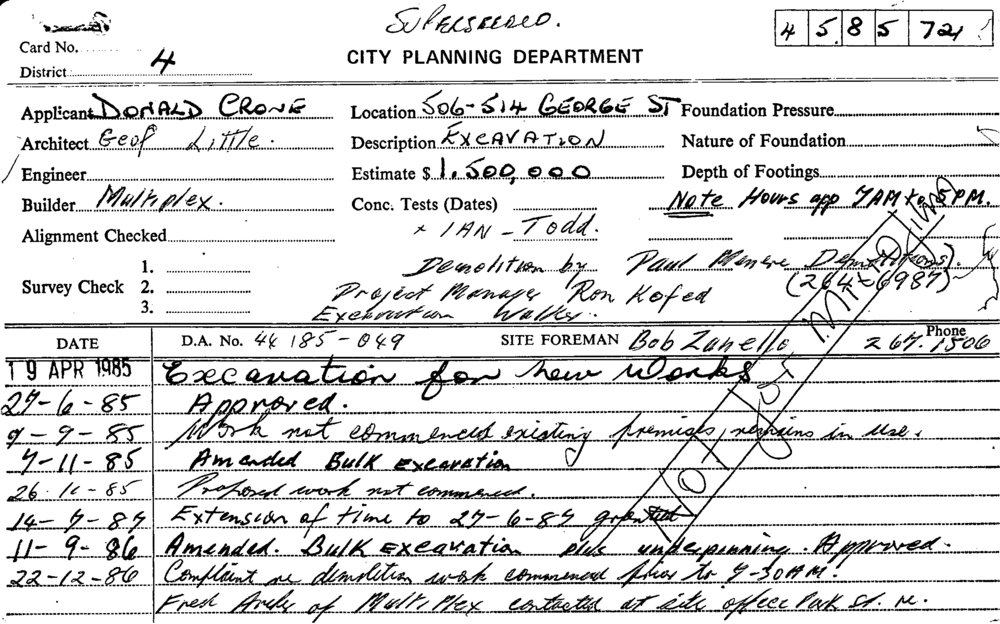 SUPERSEDED.
4 5 8 5 72
Card No.
District 4
CITY PLANNING DEPARTMENT
Applicant DONALD CRONE Location 506-514 GEORGE ST Foundation Pressure
Architect Geof Little. Description EXCAVATION Nature of Foundation
Engineer Estimate $ 1,500,000 Depth of Footings
Builder Multiplex. Conc. Tests (Dates) Note Hours app 7AM to 5PM.
Alignment Checked x IAN - Todd.
Survey Check 1.
2.
3.
Demolition by Paul Demolitions).
Project Manager Ron Kofed (264-6987)
Excavation Walker.
DATE D.A. No. 44 185-049 SITE FOREMAN Bob Zanello Phone 267.1506
19 APR 1985 Excavation for new Works
27-6-85 Approved.
9-9-85 Work not commenced existing premises remains in use.
7-11-85 Amended Bulk Excavation
26.11-85 Proposed work not commenced.
14-7-87 Extension of time to 27-6-87 granted
11-9-86 Amended. Bulk Excavation plus underpinning. Approved.
22-12-86 Complaint re demolition work commenced prior to 7-30AM.
Fred of Multiplex contacted at site office Park St. re.
NOT